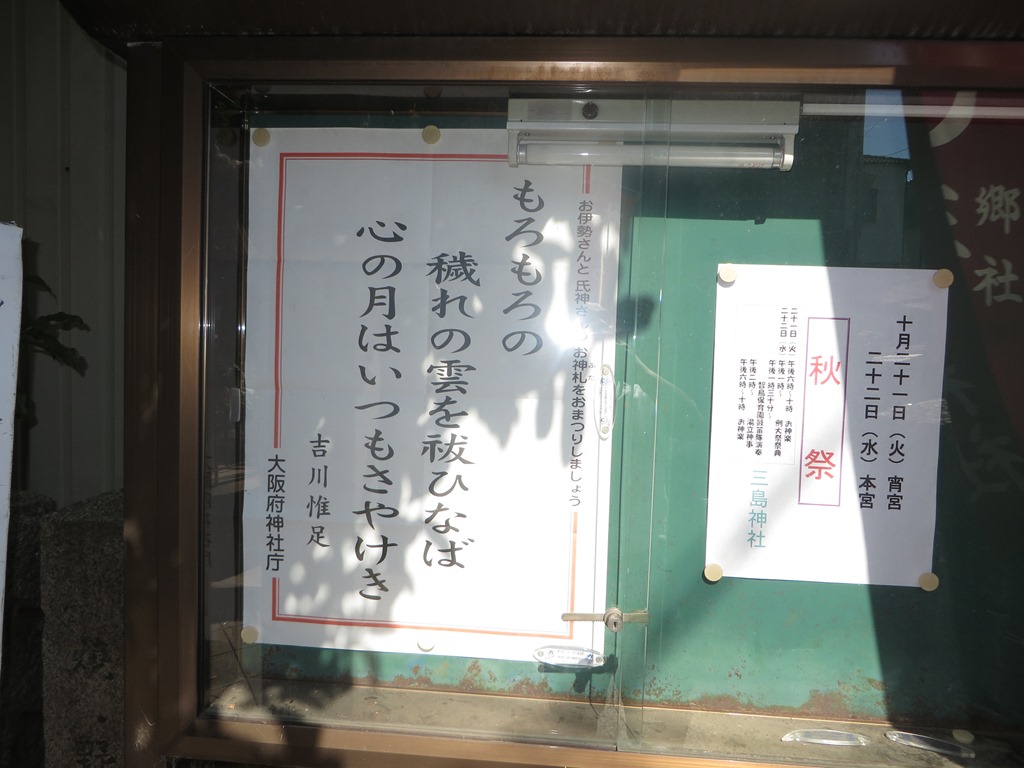 お伊勢さんと氏神さんのお神札をおまつりしましょう
もろもろの
穢れの雲を祓ひなば
心の月はいつもさやけき
吉川惟足
大阪府神社庁
十月二十一日（火）宵宮
二十二日（水）本宮
秋祭
二十一日（火）午後六時～十時 お神楽
二十二日（水）午後一時～ 例大祭祭典
午後一時三十分～ 皙島保育園鼓笛隊演奏
午後二時～ 湯立神事
午後六時～十時 お神楽
三島神社
郷
社